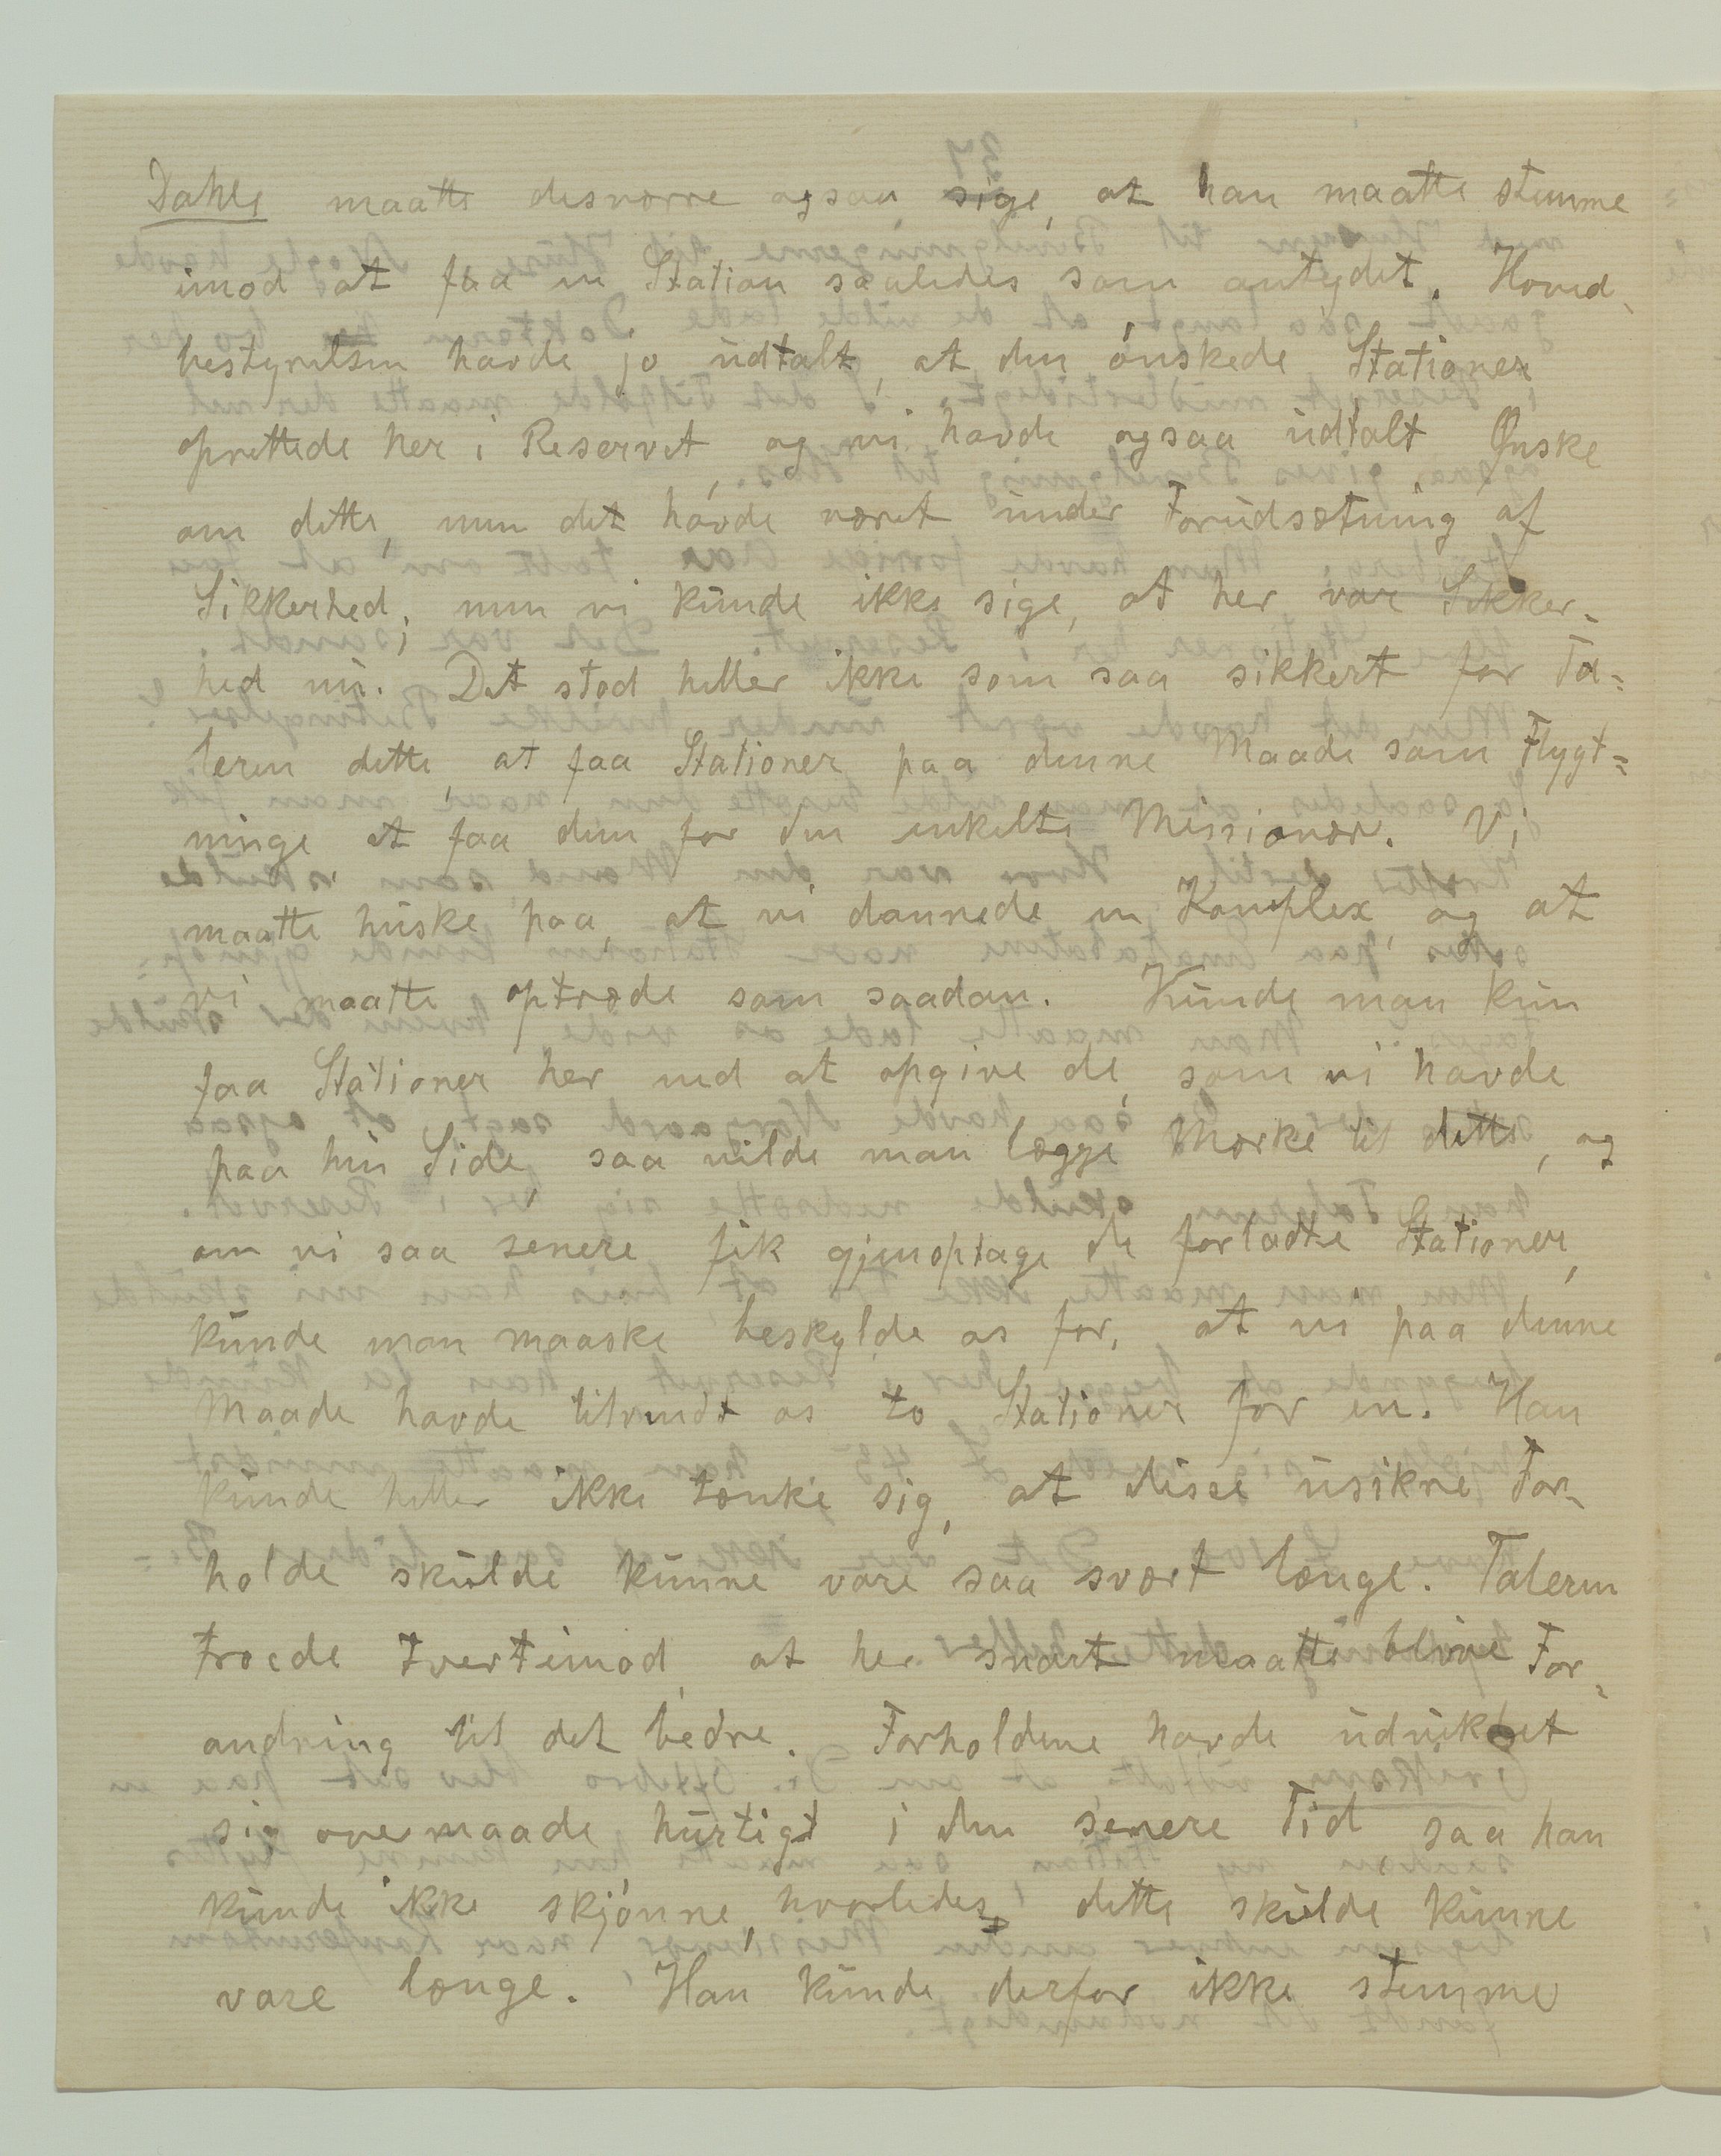 Dahle maatte desværre ogsaa sige, at han maatte stemme
imod at faa en Station saaledes som antydet. Hoved-
bestyrelsen havde jo udtalt, at den ønskede Stationer
oprettede her i Reservet, og vi havde ogsaa udtalt Ønske
om dette, men det havde været under Forudsætning af
Sikkerhed; men vi kunde ikke sige, at her var Sikker-
hed nu. Det stod heller ikke som saa sikkert for Ta=
leren dette, at faa Stationer paa denne Maade som Flygt=
ninge at faa dem for den enkelte Missionær. Vi
maatte huske paa, at vi dannede en Komplex, og at
vi maatte optræde som saadan. Kunde man kun
faa Stationer her ved at opgive de, som vi havde
paa hin Side, saa vilde man lægge Mærke til dette, og
om vi saa senere fik gjenoptage de forladte Stationer,
kunde man maaske beskylde os for, at vi paa denne
Maade havde tilvendt os to Stationer for en. Han
kunde heller ikke tænke sig, at disse usikre For-
holde skulde kunne vare saa svært længe. Taleren
troede tvertimod, at her snart maatte blive For-
andring til det bedre. Forholdene havde udviklet
sig overmaade hurtigt i den senere Tid saa han
kunde ikke skjønne, hvorledes dette skulde kunne
vare længe. Han kunde derfor ikke stemme